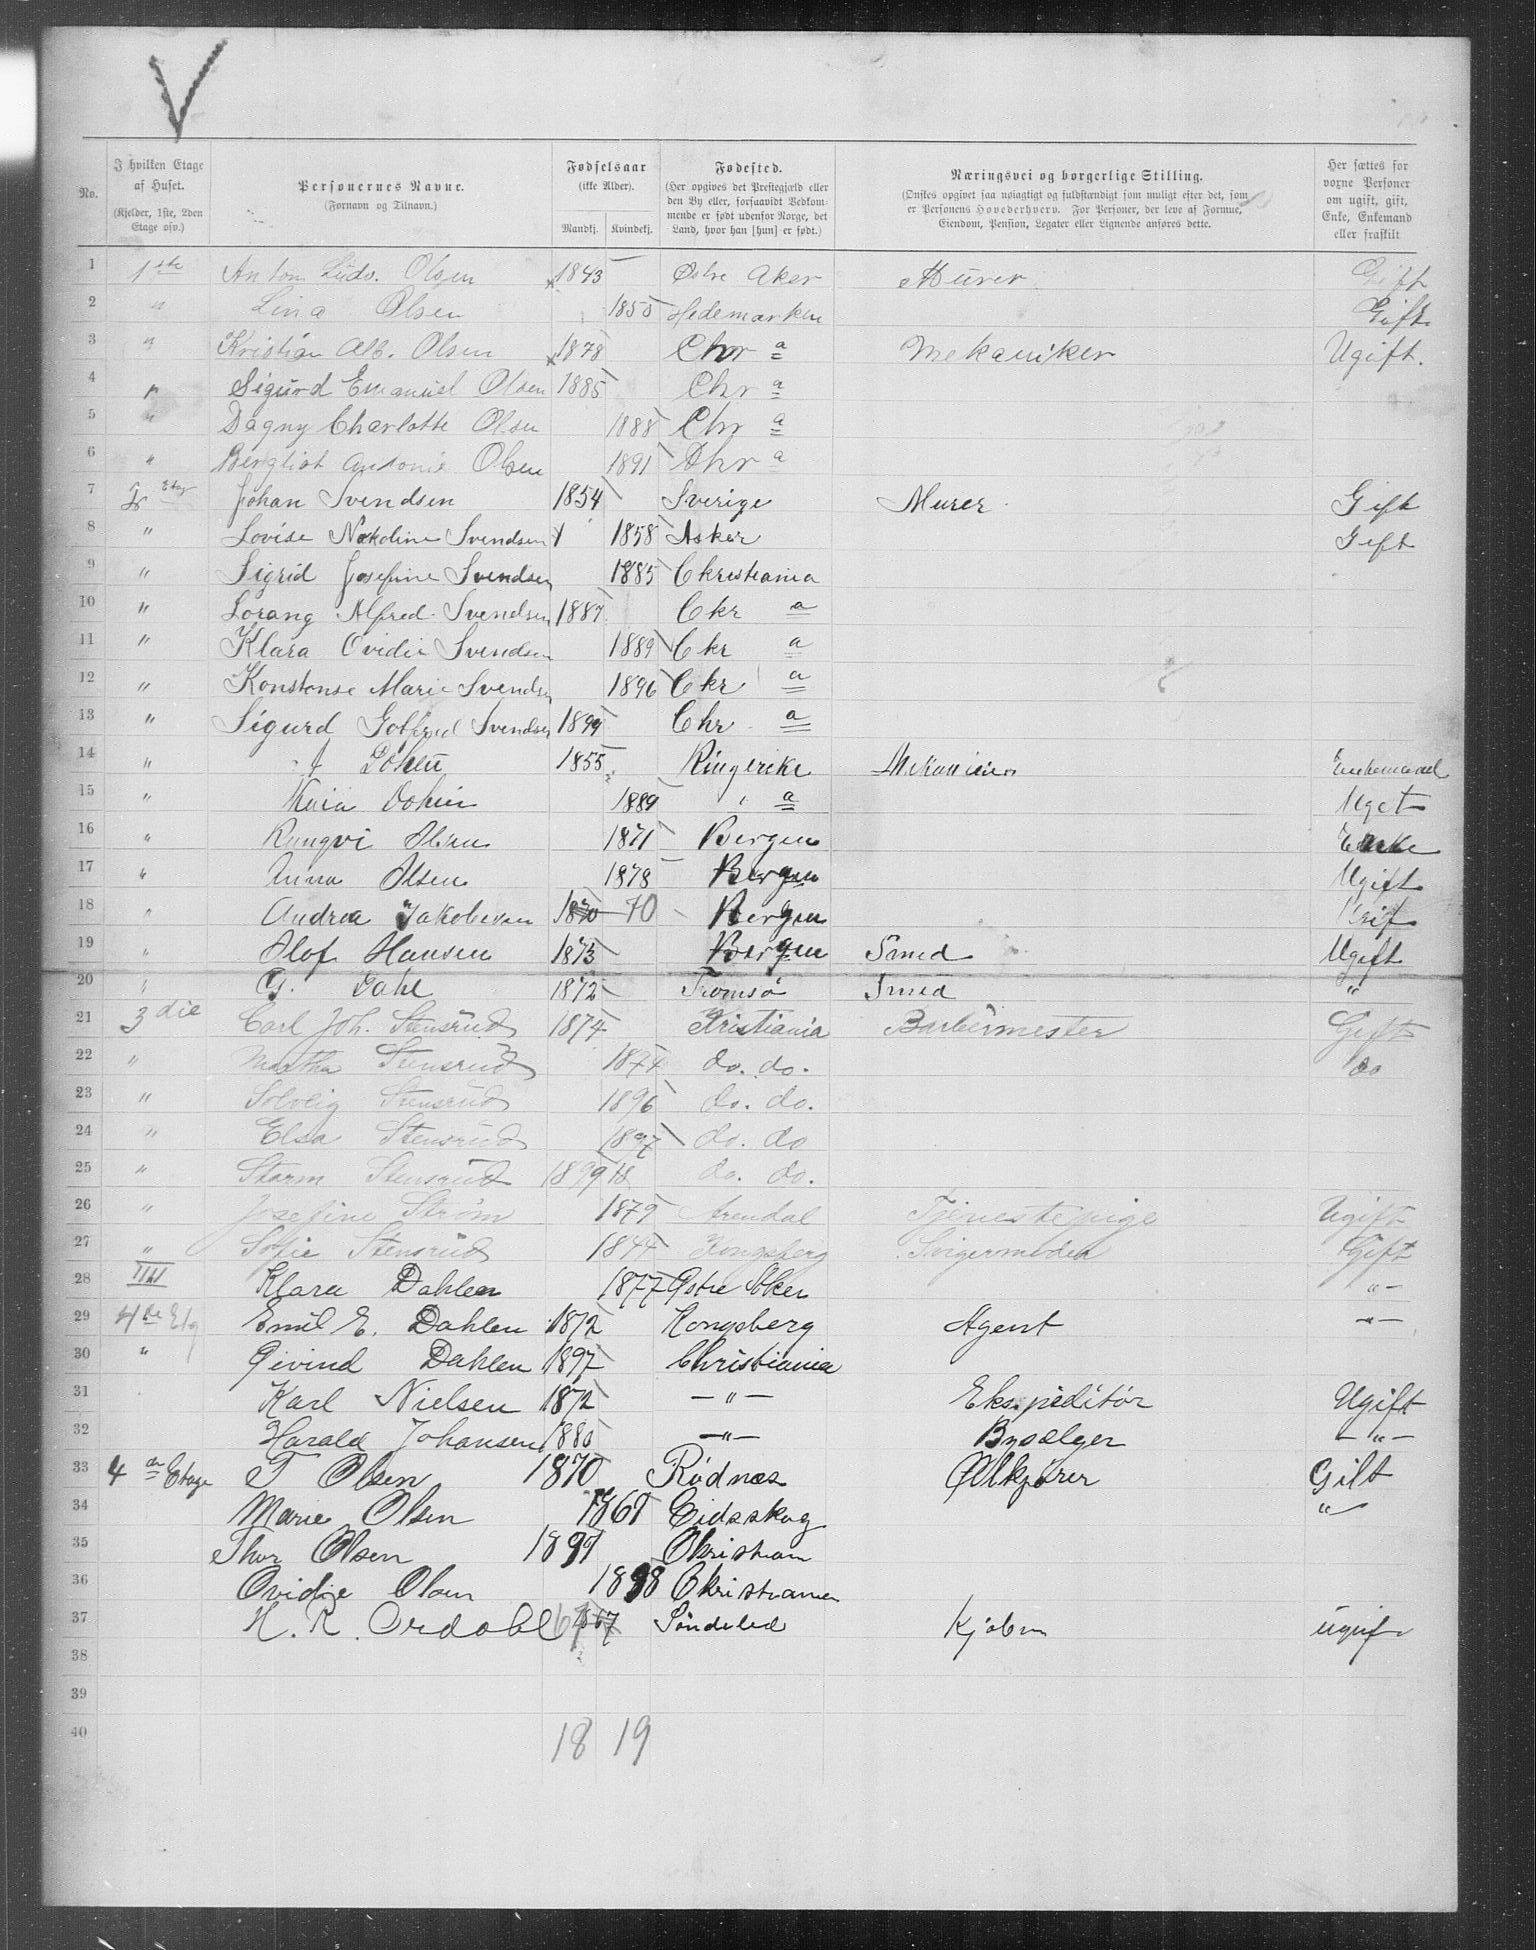 V
No.
I hvilken Etage af Huset.
(Kjelder, 1ste, 2den Etage osv.)
Personernes Navne.
(Fornavn og Tilnavn.)
Fødselsaar
(ikke Alder).
Mandkj. Kvindekj.
Fødested.
(Her opgives det Prestegjæld eller den By eller, forsaavidt Vedkommende er født udenfor Norge, det Land, hvor han [hun] er født.)
Næringsvei og borgerlige Stilling.
(Ønskes opgivet saa nøiagtigt og fuldstændigt som muligt efter det, som er Personens Hovederhverv. For Personer, der leve af Formue, Eiendom, Pension, Legater eller Lignende anføres dette.
Her sættes for voxne Personer om ugift, gift, Enke, Enkemand eller fraskilt
1 1ste Anton Ludv. Olsen 1843 Østre Aker Murer Gift
2 " Lina Olsen 1850 Hedemarken Gift
3 " Kristian Alb. Olsen 1878 Chr a Mekaniker Ugift.
4 " Sigurd Emanuel Olsen 1885 Chr a
5 " Dagny Charlotte Olsen 1888 Chr a
6 " Bergliot Antonie Olsen 1891 Chr a
7 2 Etag Johan Svendsen 1854 Sverige Murer Gift
8 " Lovise Svendsen 1858 Asker Gift
9 " Sigrid Josefine Svendsen 1885 Christiania
10 " Lorang Alfred Svendsen 1887 Chr a
11 " Klara Ovidie Svendsen 1889 Chr a
12 " Konstanse Marie Svendsen 1896 Chr a
13 " Sigurd Gotfred Svendsen 1899 Chr a
14 " 1855 Ringerike Enkemand
15 " 1889 " a Ugct
16 " Rangvi Olsen 1871 Bergen Enke
17 " Anna Olsen 1878 Bergen Ugift
18 " Andrea Jakobsen 1870 70 Bergen
19 " Olof Hansen 1873 Bergen Smed Ugift
20 " G. Dahl 1872 Tromsø Smed "
21 3die Carl Joh. Stensrud 1874 Kristiania Barbermester Gift
22 " Martha Stensrud 1874 do. do. do
23 " Solveig Stensrud 1896 do. do.
24 " Elsa Stensrud 1897 do. do
25 " Storm Stensrud 1899 18 do. do.
26 " Josefine Strøm 1879 Arendal Tjenestepige Ugift
27 " Sofie Stensrud 1844 Kongsberg Svigermoder Gift
28 IIII Klara Dahlen 1877 Østre Aker "
29 4de Etg Emil E. Dahlen 1872 Kongsberg Agent "
30 " Øivind Dahlen 1897 Christiania
31 Karl Nielsen 1872 — " — Ekspeditør Ugift
32 Harald Johansen 1880 — " — Bysælger — " —
33 4 de Etage T Olsen 1870 Rødnæs Ølkjører Gift
34 Marie Olsen 1868 Eidsskog "
35 Thor Olsen 1899 Christian
36 Ovidie Olsen 1898 Christiania
37 H. R. Ordahl 67 Søndeled ugift
38
39
40
18 19